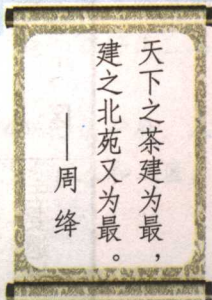 天下之茶建为最，
建之北苑又为最。
——周绛